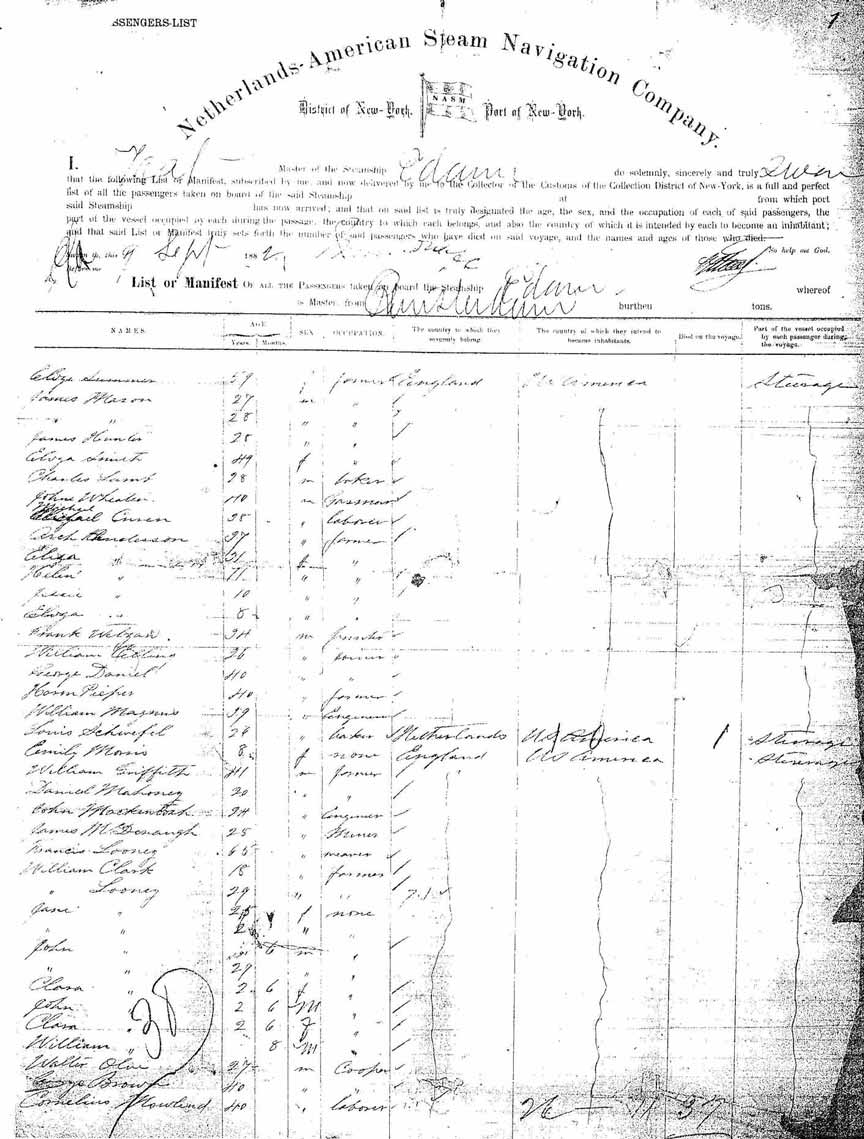 SSENGERS-LIST
1
Netherlands-American Steam Navigation Company.
District of New-York. NASM Port of New-York.
I. Taat Master of the Steamship Edam do solemnly, sincerely and truly Swear
that the following List or Manifest, subscribed by me, and now delivered by me to the Collector of the Customs of the Collection District of New-York, is a full and perfect
list of all the passengers taken on board of the said Steamship at from which port
said Steamship has now arrived; and that on said list is truly designated the age, the sex, and the occupation of each of said passengers, the
part of the vessel occupied by each during the passage, the country to which each belongs, and also the country of which it is intended by each to become an inhabitant;
and that said List or Manifest truly sets forth the number of said passengers who have died on said voyage, and the names and ages of those who died.
this 9 Sept 1882 So help me God.
before me
List or Manifest OF ALL THE PASSENGERS taken on board the Steamship Edam whereof
is Master, from Amsterdam burthen tons.
NAMES. AGE Years. Months. SEX OCCUPATION. The country to which they severally belong. The country of which they intend to become inhabitants. Died on the voyage. Part of the vessel occupied by each passenger during the voyage.
Eliza Summer 59 f England US America Steerage
James Mason 27 m "
" " 28 " "
James Hunter 28 " "
Eliza Smith 49 f "
Charles Lamb 28 m baker
John Wheaten 40 m Gasman
Michael 38 " laborer
Arch Henderson 37 " farmer
Eliza " 31 f "
Helen " 11 " "
Jessie " 10 " "
Eliza " 8 " "
Frank 34 m
William 26 "
George Daniel 40 " "
Harm Pieper 40 " farmer
William Magnus 39 " Engineer
Louis Schiefel 24 " baker Netherlands US America 1 Steerage
Emily Morris 8 f none England US America Steerage
William Griffith 41 m farmer "
Daniel Mahoney 20 " "
John Mackintosh 34 " Engineer
James McDonaugh 28 " Miner
Francis Looney 65 " weaver
William Clark 18 " farmer
" Looney 29 " "
Jane " 25 f none
2 " "
John " 6 m "
" " 29 "
Clara " 2 6 f "
John " 2 6 M "
Clara " 2 6 f "
William " 8 M "
30
Walter 27 m Cooper
George Brown 40 " "
Cornelius Howland 40 " laborer
26 11 37